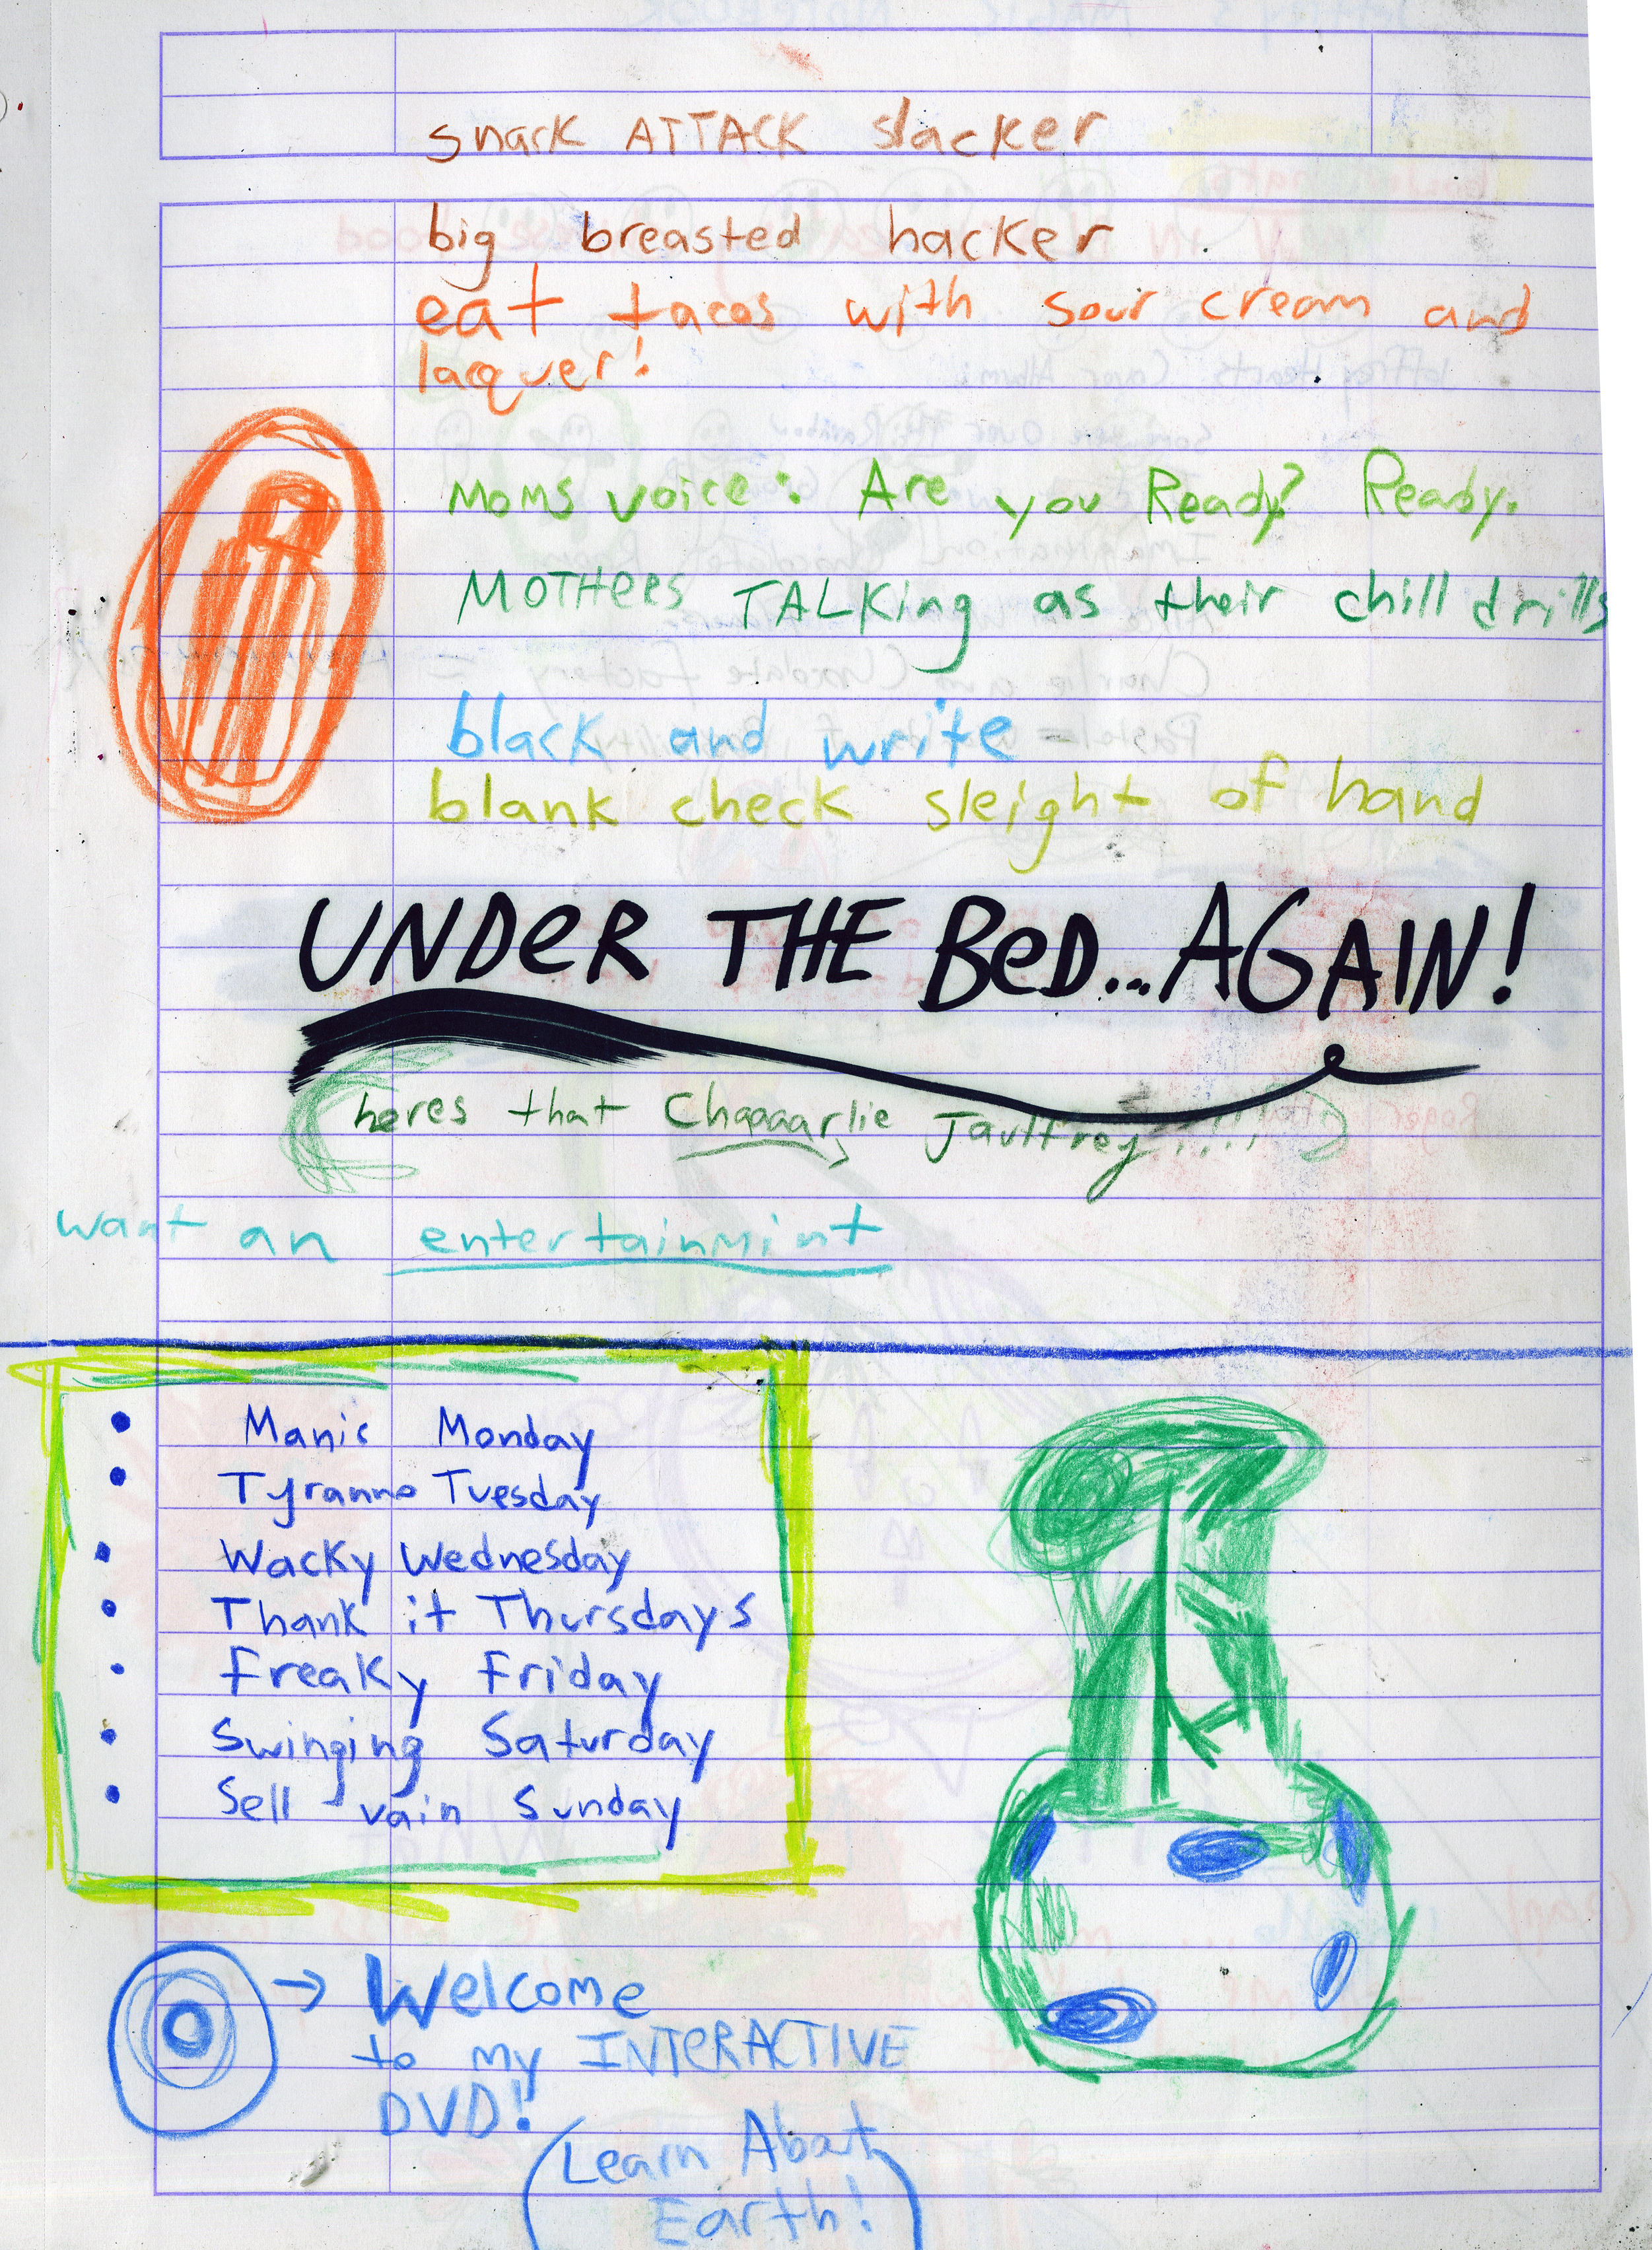 snark ATTACK slacker
big breasted hacker
eat tacos with sour cream and
laquer!
Moms voice: Are you Ready? Ready.
MOTHERS TALKing as their chill drills
black and write
blank check sleight of hand
UNDER THE BED...AGAIN!
heres that Chaaaarlie
want an entertainmint
Manic Monday
Tyranno Tuesday
Wacky Wednesday
Thank it Thursdays
Freaky Friday
Swinging Saturday
Sell vain Sunday
Welcome
to my INTERACTIVE
DVD!
(Learn About
Earth!)